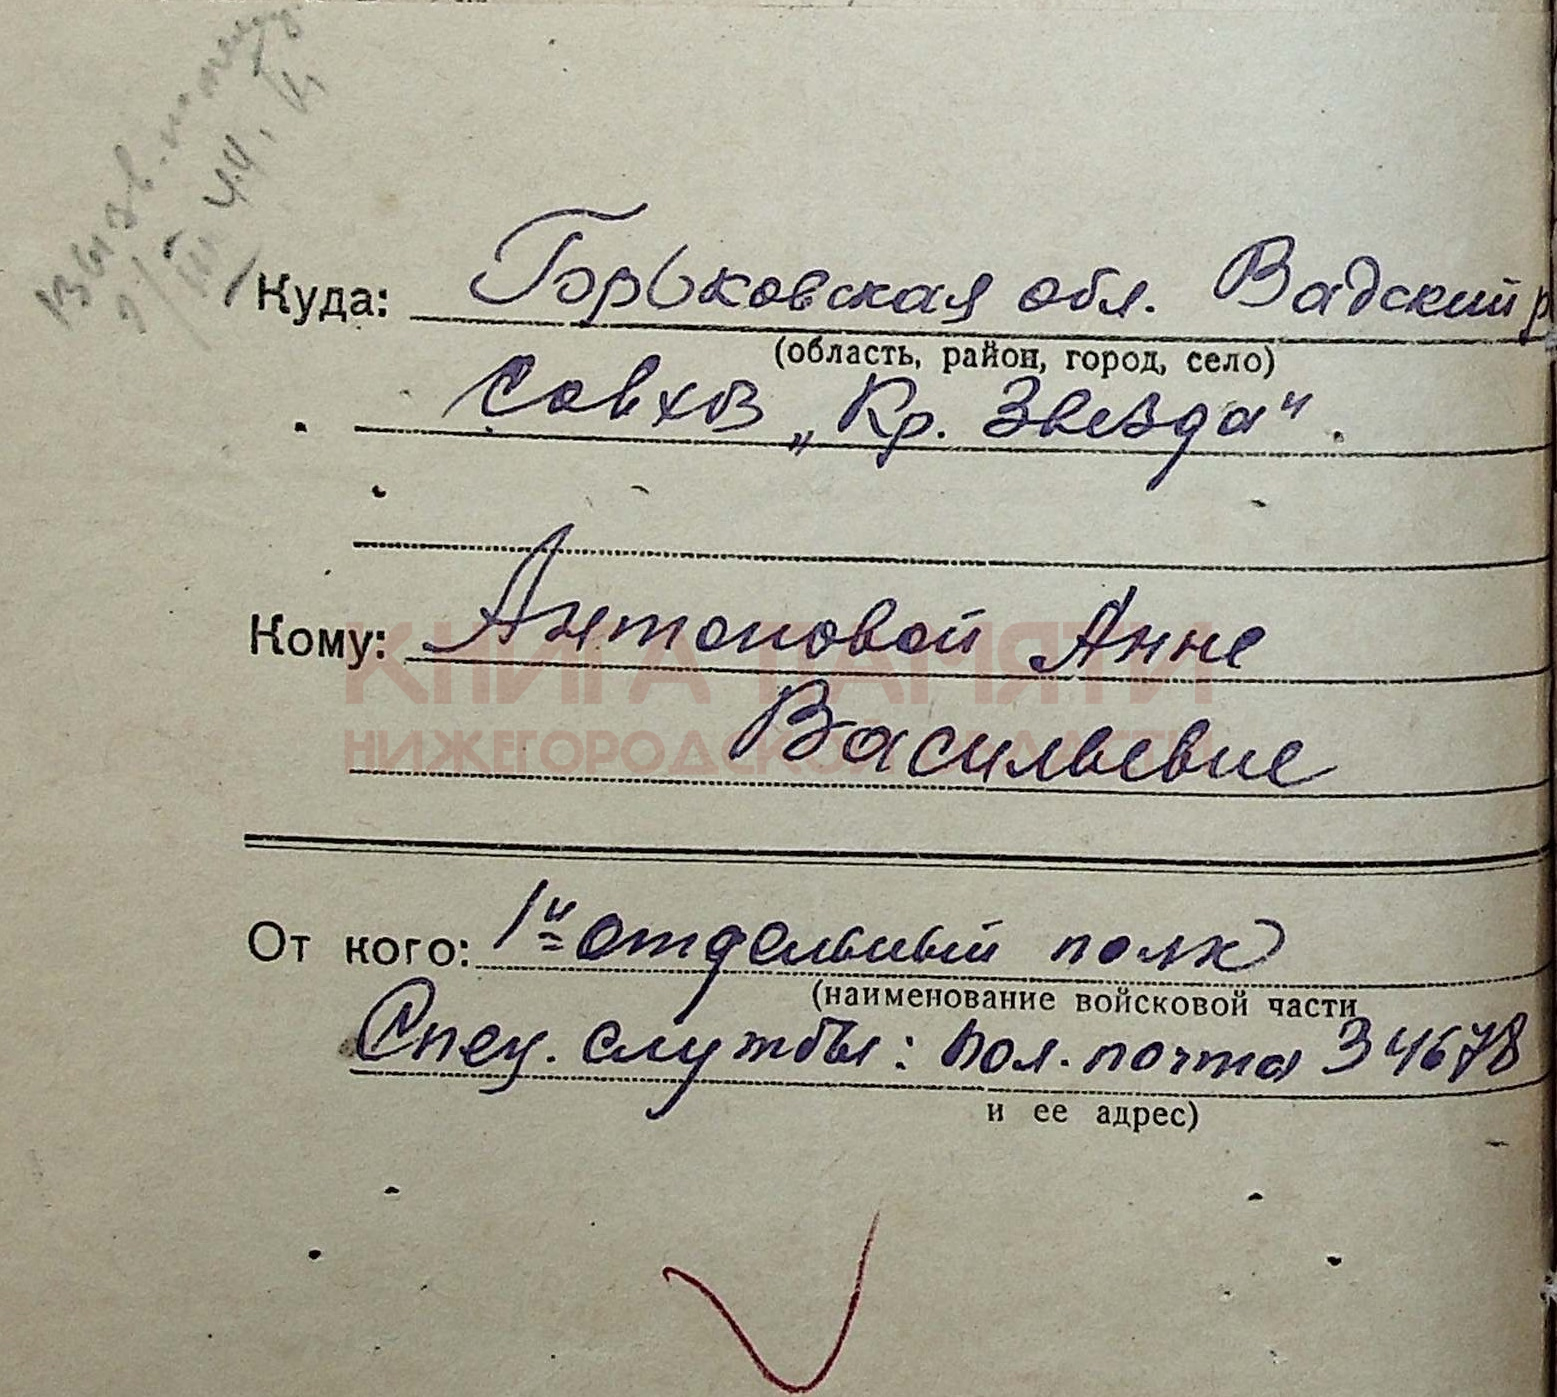 44.
Куда: Горьковская обл. Вадский р
(область, район, город, село)
Совхоз „Кр. Звезда".
Кому: Антоновой Анне
КНИГА ПАМЯТИ
Васильевне
НИЖЕГОРОДСКОЙ ОБЛАСТИ
От кого: 1й отдельный полк
(наименование войсковой части
Спец. службы: пол. почта 34678
и ее адрес)